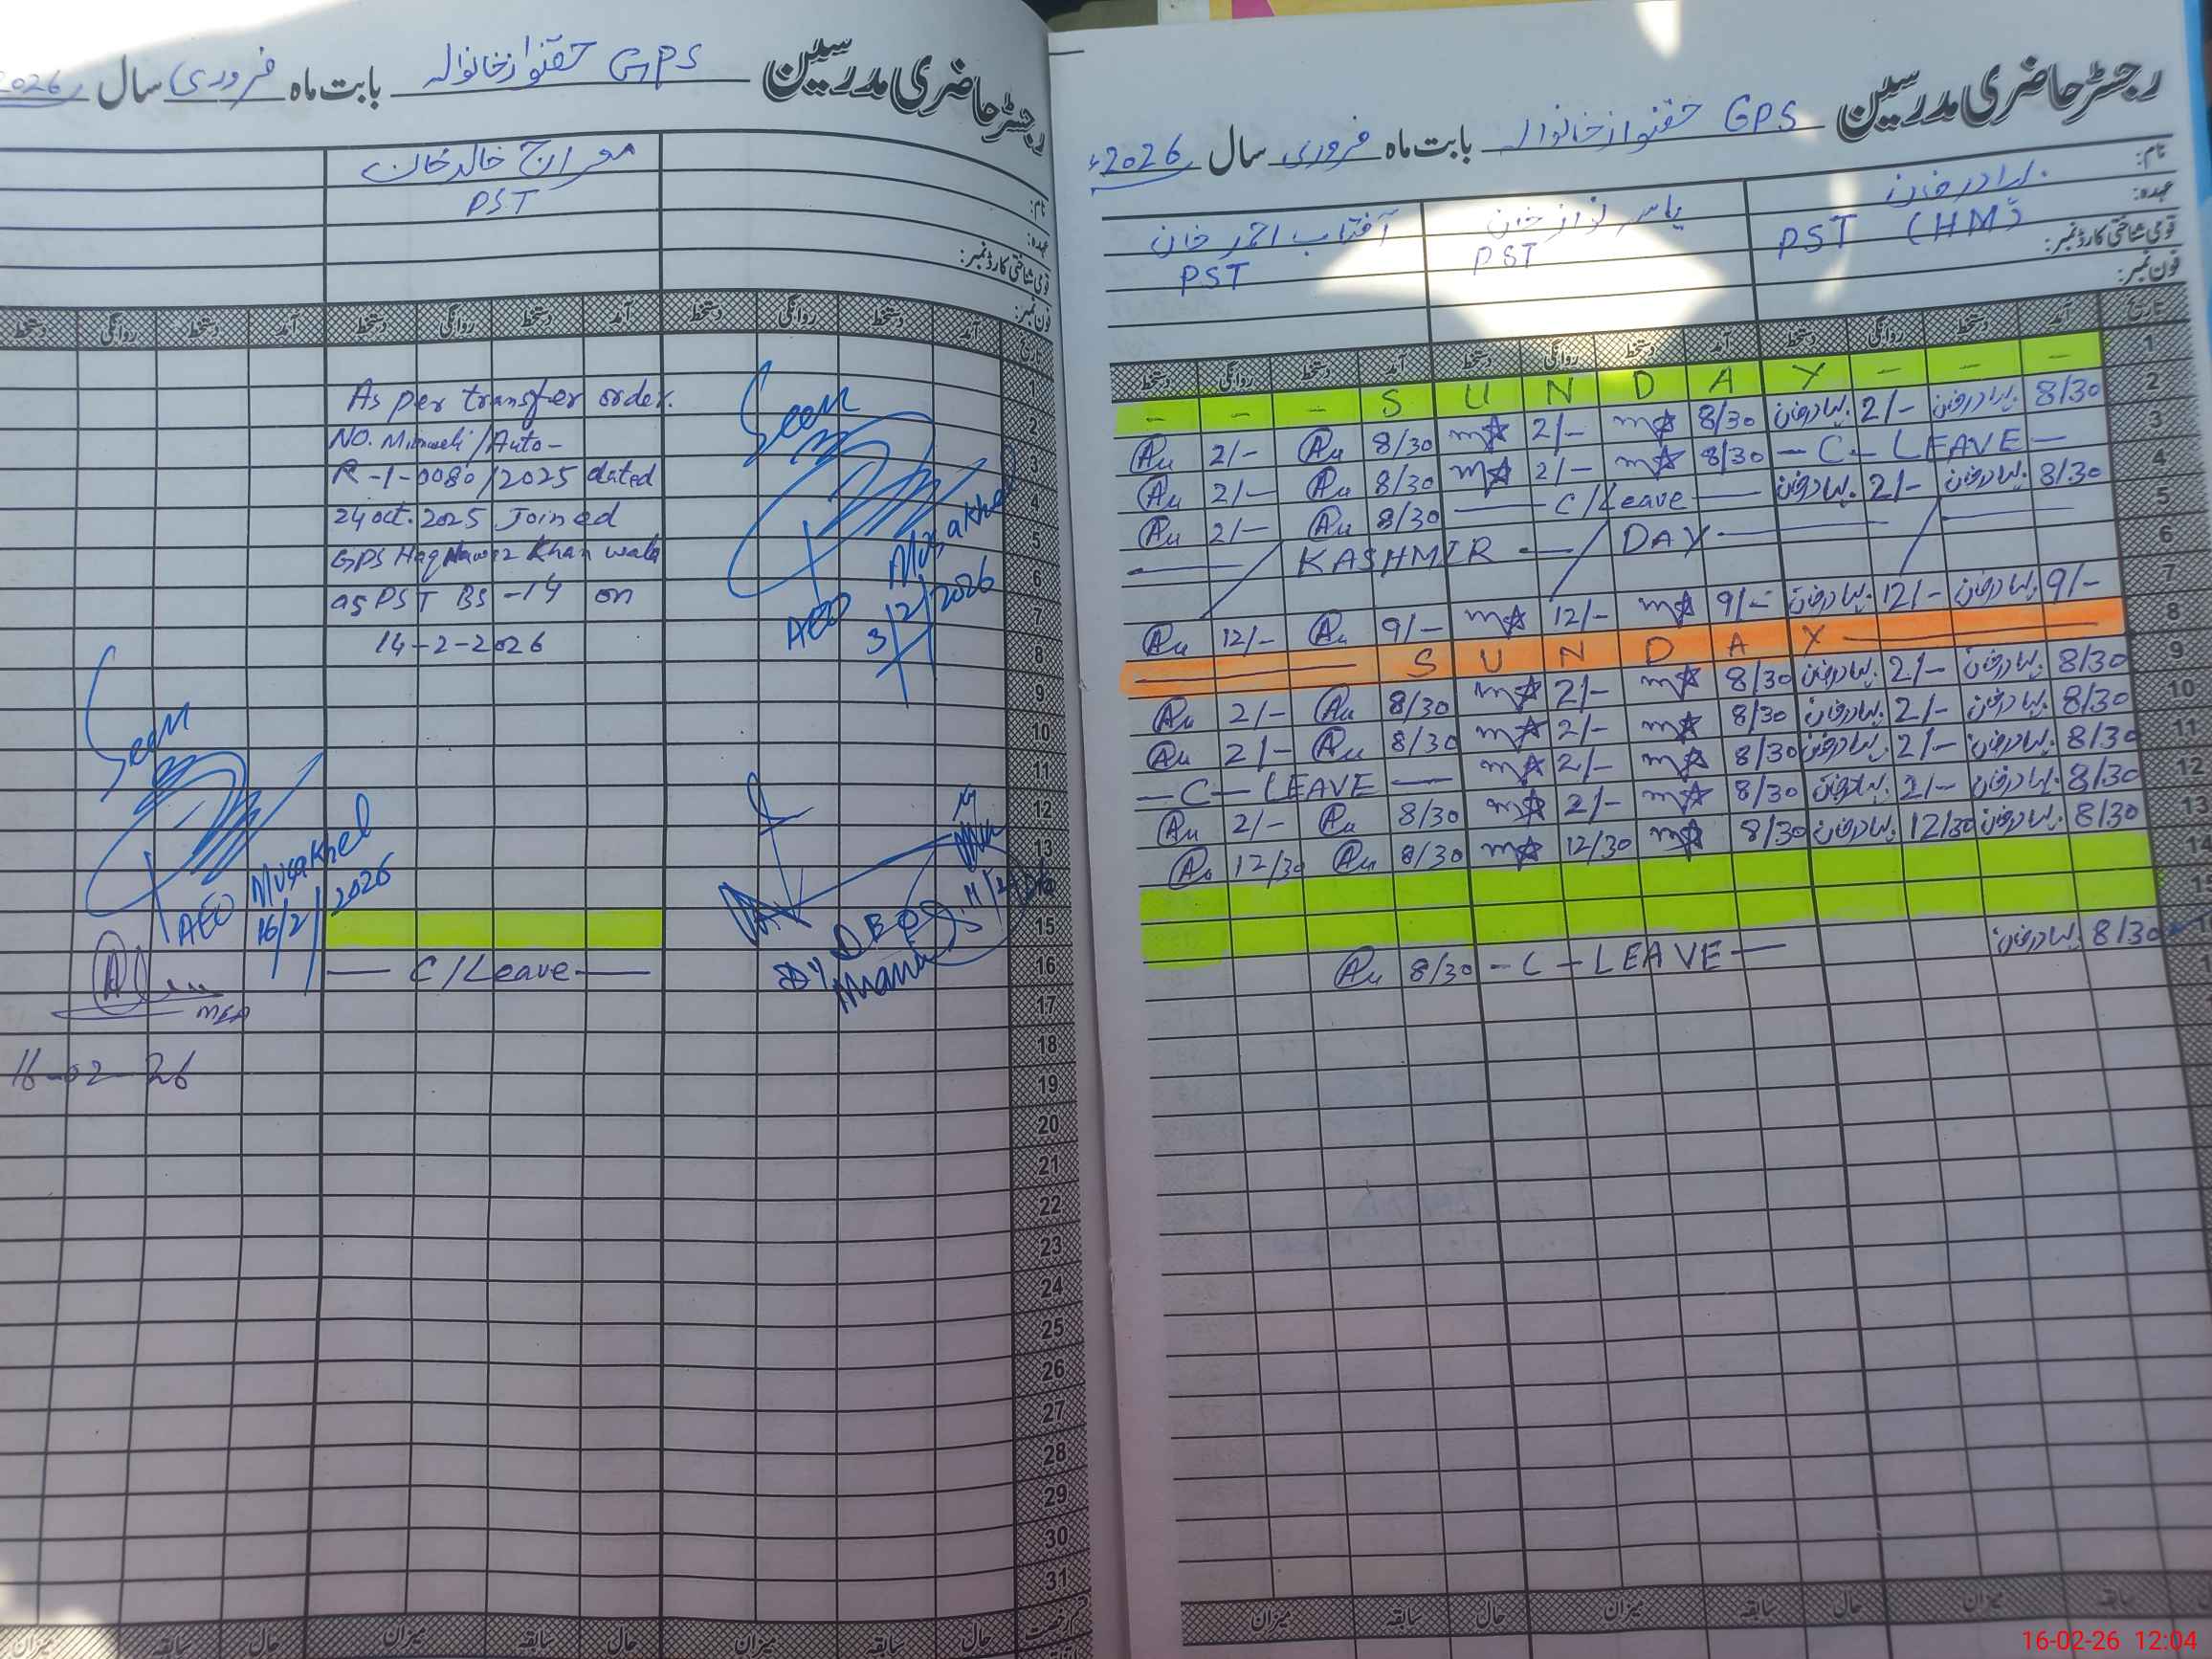 رجسٹر حاضری مدرسین GPS حقنواز خانوالہ بابت ماہ فروری سال 2026ء
نام:
عہدہ:
قومی شناختی کارڈ نمبر:
فون نمبر:
یاسر نواز خان
آفتاب احمد خان
PST (HM)
PST
PST
تاریخ آمد دستخط روانگی دستخط آمد دستخط روانگی دستخط آمد دستخط روانگی دستخط
1
- - - S U N D A Y - - -
2
Au 2/- Au 8/30 2/- 8/30 2/- 8/30
3
Au 2/- Au 8/30 2/- 8/30 - C - LEAVE -
4
Au 2/- Au 8/30 - C/Leave - 2/- 8/30
5
KASHMIR - DAY -
6
7
Au 12/- Au 9/- 12/- 9/- 12/- 9/-
8
S U N D A Y
9
Au 2/- Au 8/30 2/- 8/30 2/- 8/30
10
Au 2/- Au 8/30 2/- 8/30 2/- 8/30
11
- C - LEAVE - 2/- 8/30 2/- 8/30
12
Au 2/- Au 8/30 2/- 8/30 2/- 8/30
13
Au 12/30 Au 8/30 12/30 8/30 12/30 8/30
14
15
Au 8/30 - C - LEAVE - 8/30
میزان سابقہ حال میزان سابقہ حال میزان سابقہ
رجسٹر حاضری مدرسین GPS حقنواز خانوالہ بابت ماہ فروری سال 2026
نام:
عہدہ:
قومی شناختی کارڈ نمبر:
فون نمبر:
معراج خالد خان
PST
تاریخ آمد دستخط روانگی دستخط آمد دستخط روانگی دستخط آمد دستخط روانگی دستخط
As per transfer order.
NO. /Auto-
R-1-0080/2025 dated
24 oct. 2025 Joined
GPS Haq Nawaz Khan wala
as PST BS-14 on
14-2-2026
Seen
AEO Musakhel
3/2/2026
Seen
AEO Musakhel
16/2/2026
MEA
16-02-26
— C/Leave —
1
2
3
4
5
6
7
8
9
10
11
12
13
14
15
16
17
18
19
20
21
22
23
24
25
26
27
28
29
30
31
حال سابقہ میزان حال سابقہ میزان حال سابقہ میزان
16-02-26 12:04